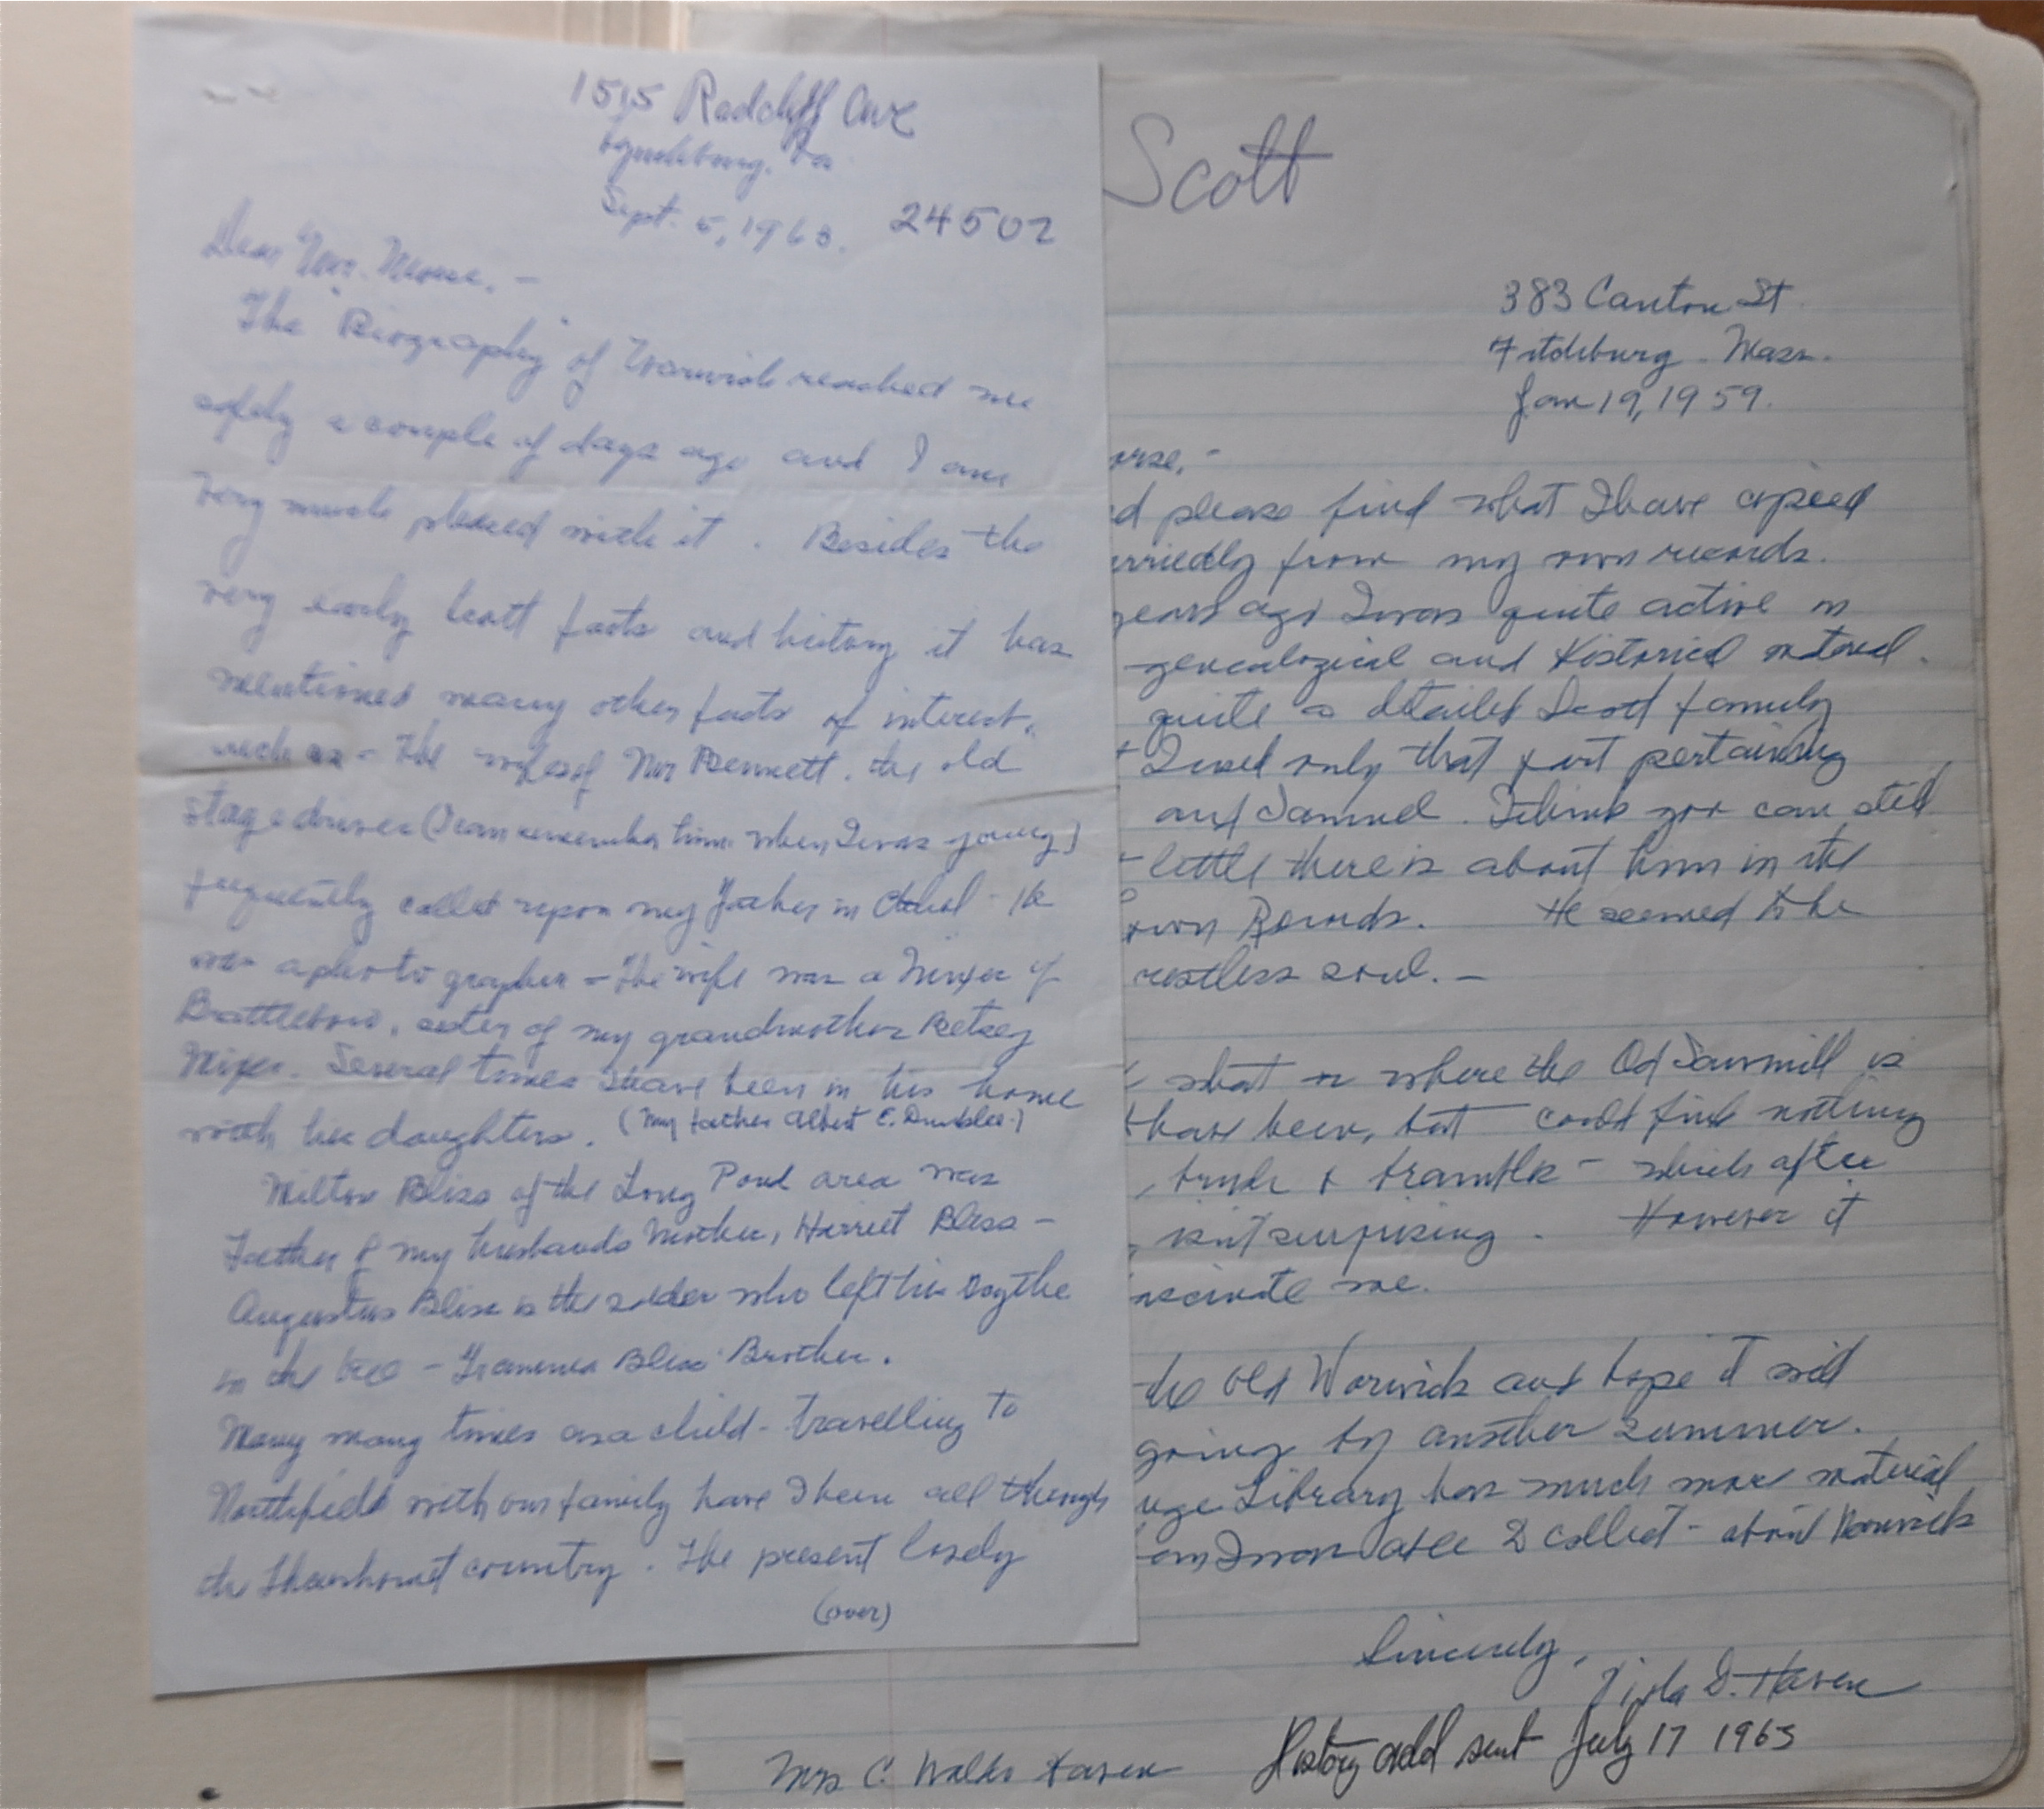 1515 Radcliff Ave
Lynchburg, Va
Sept. 5, 1963. 24502
Dear Mr. Morse, —
The "Biography" of Warwick reached me
safely a couple of days ago and I am
very much pleased with it. Besides the
very early Scott facts and history it has
mentioned many other facts of interest,
such as - The wife of Mr Bennett, the old
stage driver (I can remember him when I was young)
frequently called upon my Father in Athol - He
was a photographer - The wife was a Mixer of
Brattleboro, sister of my grandmother Betsey
Mixer. Several times I have been in his home
with his daughters. (My father Albert E. Dunklee.)
Milton Bliss of the Long Pond area was
Father of my husbands Mother, Harriet Bliss -
Augustus Bliss is the soldier who left his scythe
in the tree - Bliss' Brother.
Many many times as a child - travelling to
Northfield with our family have I been all through
the country. The present lovely
(over)
Scott
383 Canton St
Fitchburg. Mass.
Jan 19, 1959.
orse, -
d please find what I have copied
urriedly from my own records.
years ago I was quite active in
genealogical and Historical material.
quite a detailed Scott family
t I used only that part pertaining
and Samuel. I think you can add
little there is about him in the
Town Records. He seemed to be
restless soul. —
what or where the Old Sawmill is
have been, but could find nothing
, brush & bramble - which after
, isn't surprising. However it
ascinate me.
the old Warwick and hope it will
going by another summer.
uge Library has much more material
I was able to collect - about Warwick
Sincerely,
Viola D. Haven
Mrs C. Haven
History add sent July 17 1963